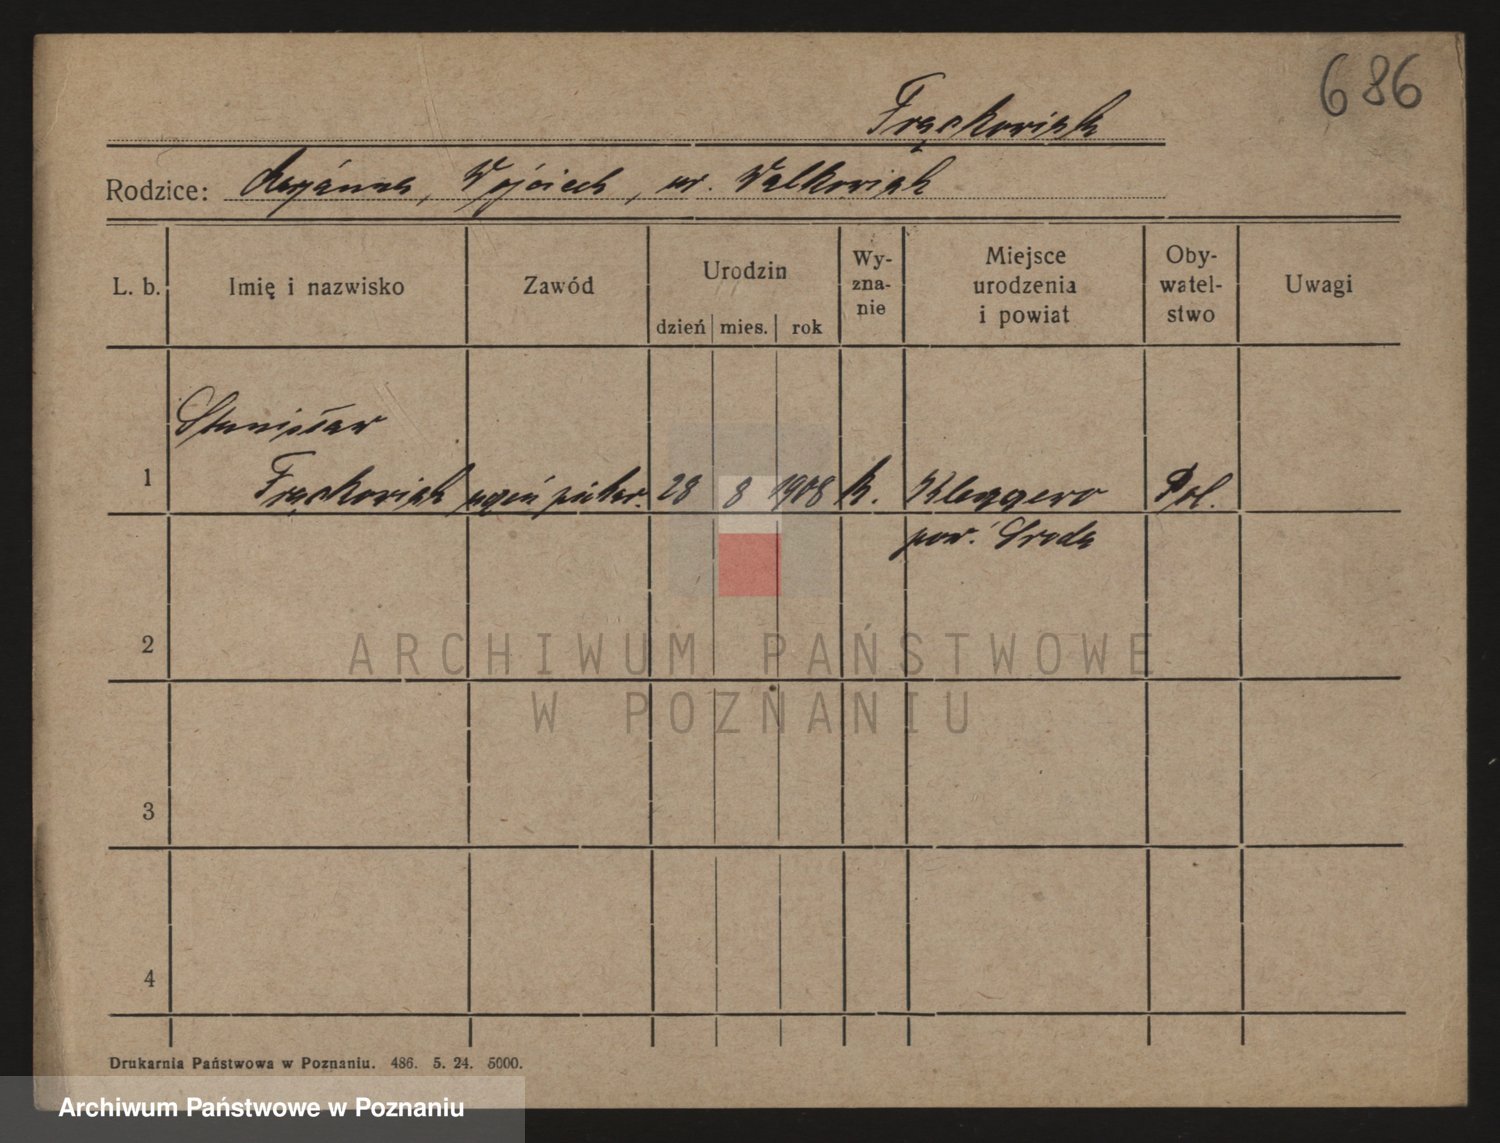 686
Frąckowiak
Rodzice: Maryanna, Wojciech, ur. Walkowiak
L. b. Imię i nazwisko Zawód Urodzin dzień mies. rok Wy-zna-nie Miejsce urodzenia i powiat Oby-watel-stwo Uwagi
Stanisław
1 Frąckowiak uczeń piekar. 28 8 1908 k. Pol.
pow. Środa
2
ARCHIWUM PAŃSTWOWE
W POZNANIU
3
4
Drukarnia Państwowa w Poznaniu. 486. 5. 24. 5000.
Archiwum Państwowe w Poznaniu